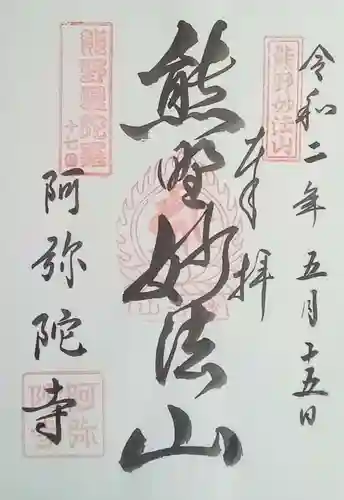 令和二年五月十五日
熊野妙法山
奉拝
熊野妙法山
阿弥陀寺
熊野曼陀羅
十七番
阿弥陀寺